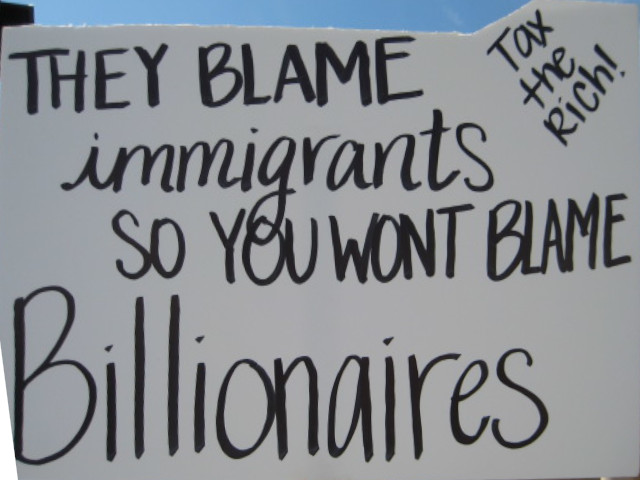 THEY BLAME
immigrants
SO YOU WONT BLAME
Billionaires
Tax
the
Rich!